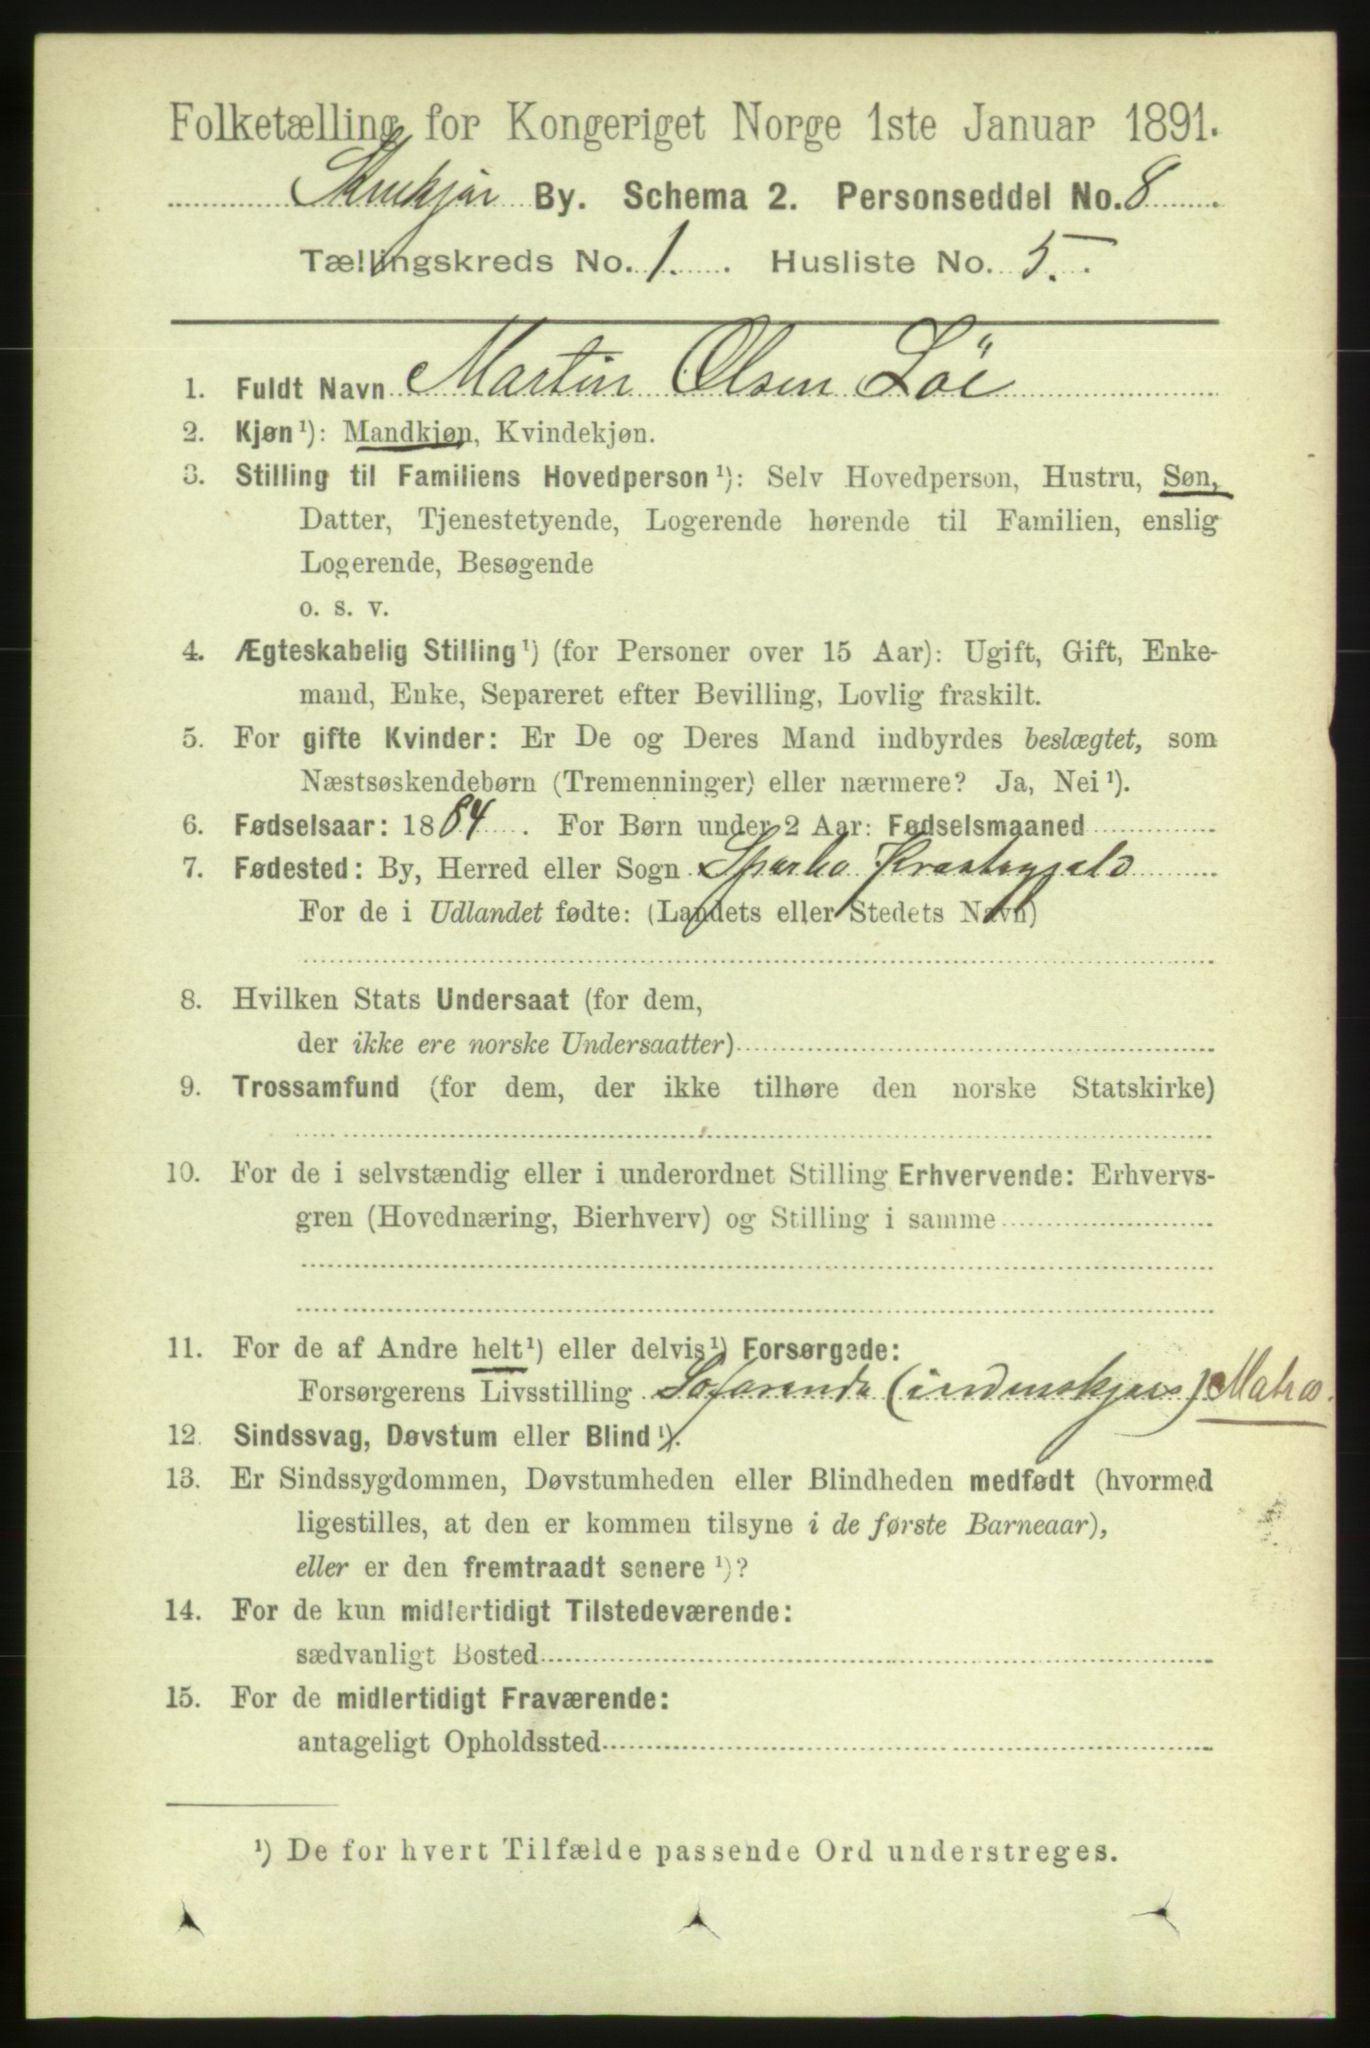 Folketælling for Kongeriget Norge 1ste Januar 1891.
Stenkjær By. Schema 2. Personseddel No. 8
Tællingskreds No. 1. Husliste No. 5.
1. Fuldt Navn Martin Olsen Löe
2. Kjøn¹): Mandkjøn, Kvindekjøn.
3. Stilling til Familiens Hovedperson¹): Selv Hovedperson, Hustru, Søn,
Datter, Tjenestetyende, Logerende hørende til Familien, enslig
Logerende, Besøgende
o. s. v.
4. Ægteskabelig Stilling¹) (for Personer over 15 Aar): Ugift, Gift, Enke-
mand, Enke, Separeret efter Bevilling, Lovlig fraskilt.
5. For gifte Kvinder: Er De og Deres Mand indbyrdes beslægtet, som
Næstsøskendebørn (Tremenninger) eller nærmere? Ja, Nei¹).
6. Fødselsaar: 1884. For Børn under 2 Aar: Fødselsmaaned
7. Fødested: By, Herred eller Sogn Sparbo Præstegjeld
For de i Udlandet fødte: (Landets eller Stedets Navn)
8. Hvilken Stats Undersaat (for dem,
der ikke ere norske Undersaatter)
9. Trossamfund (for dem, der ikke tilhøre den norske Statskirke)
10. For de i selvstændig eller i underordnet Stilling Erhvervende: Erhvervs-
gren (Hovednæring, Bierhverv) og Stilling i samme
11. For de af Andre helt¹) eller delvis¹) Forsørgede:
Forsørgerens Livsstilling Søfarende (indenskjærs) Matro.
12. Sindssvag, Døvstum eller Blind¹).
13. Er Sindssygdommen, Døvstumheden eller Blindheden medfødt (hvormed
ligestilles, at den er kommen tilsyne i de første Barneaar),
eller er den fremtraadt senere¹)?
14. For de kun midlertidigt Tilstedeværende:
sædvanligt Bosted
15. For de midlertidigt Fraværende:
antageligt Opholdssted
¹) De for hvert Tilfælde passende Ord understreges.